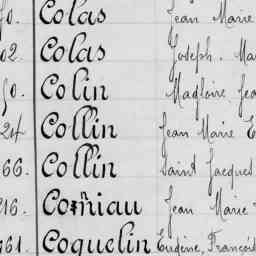 Colas Jean Marie
02. Colas Joseph. Ma
Colin Magloire Jea
24 Collin Jean Marie E
66. Collin Saint Jacques
216. Corniau Jean Marie
961. Coquelin Eugène, François